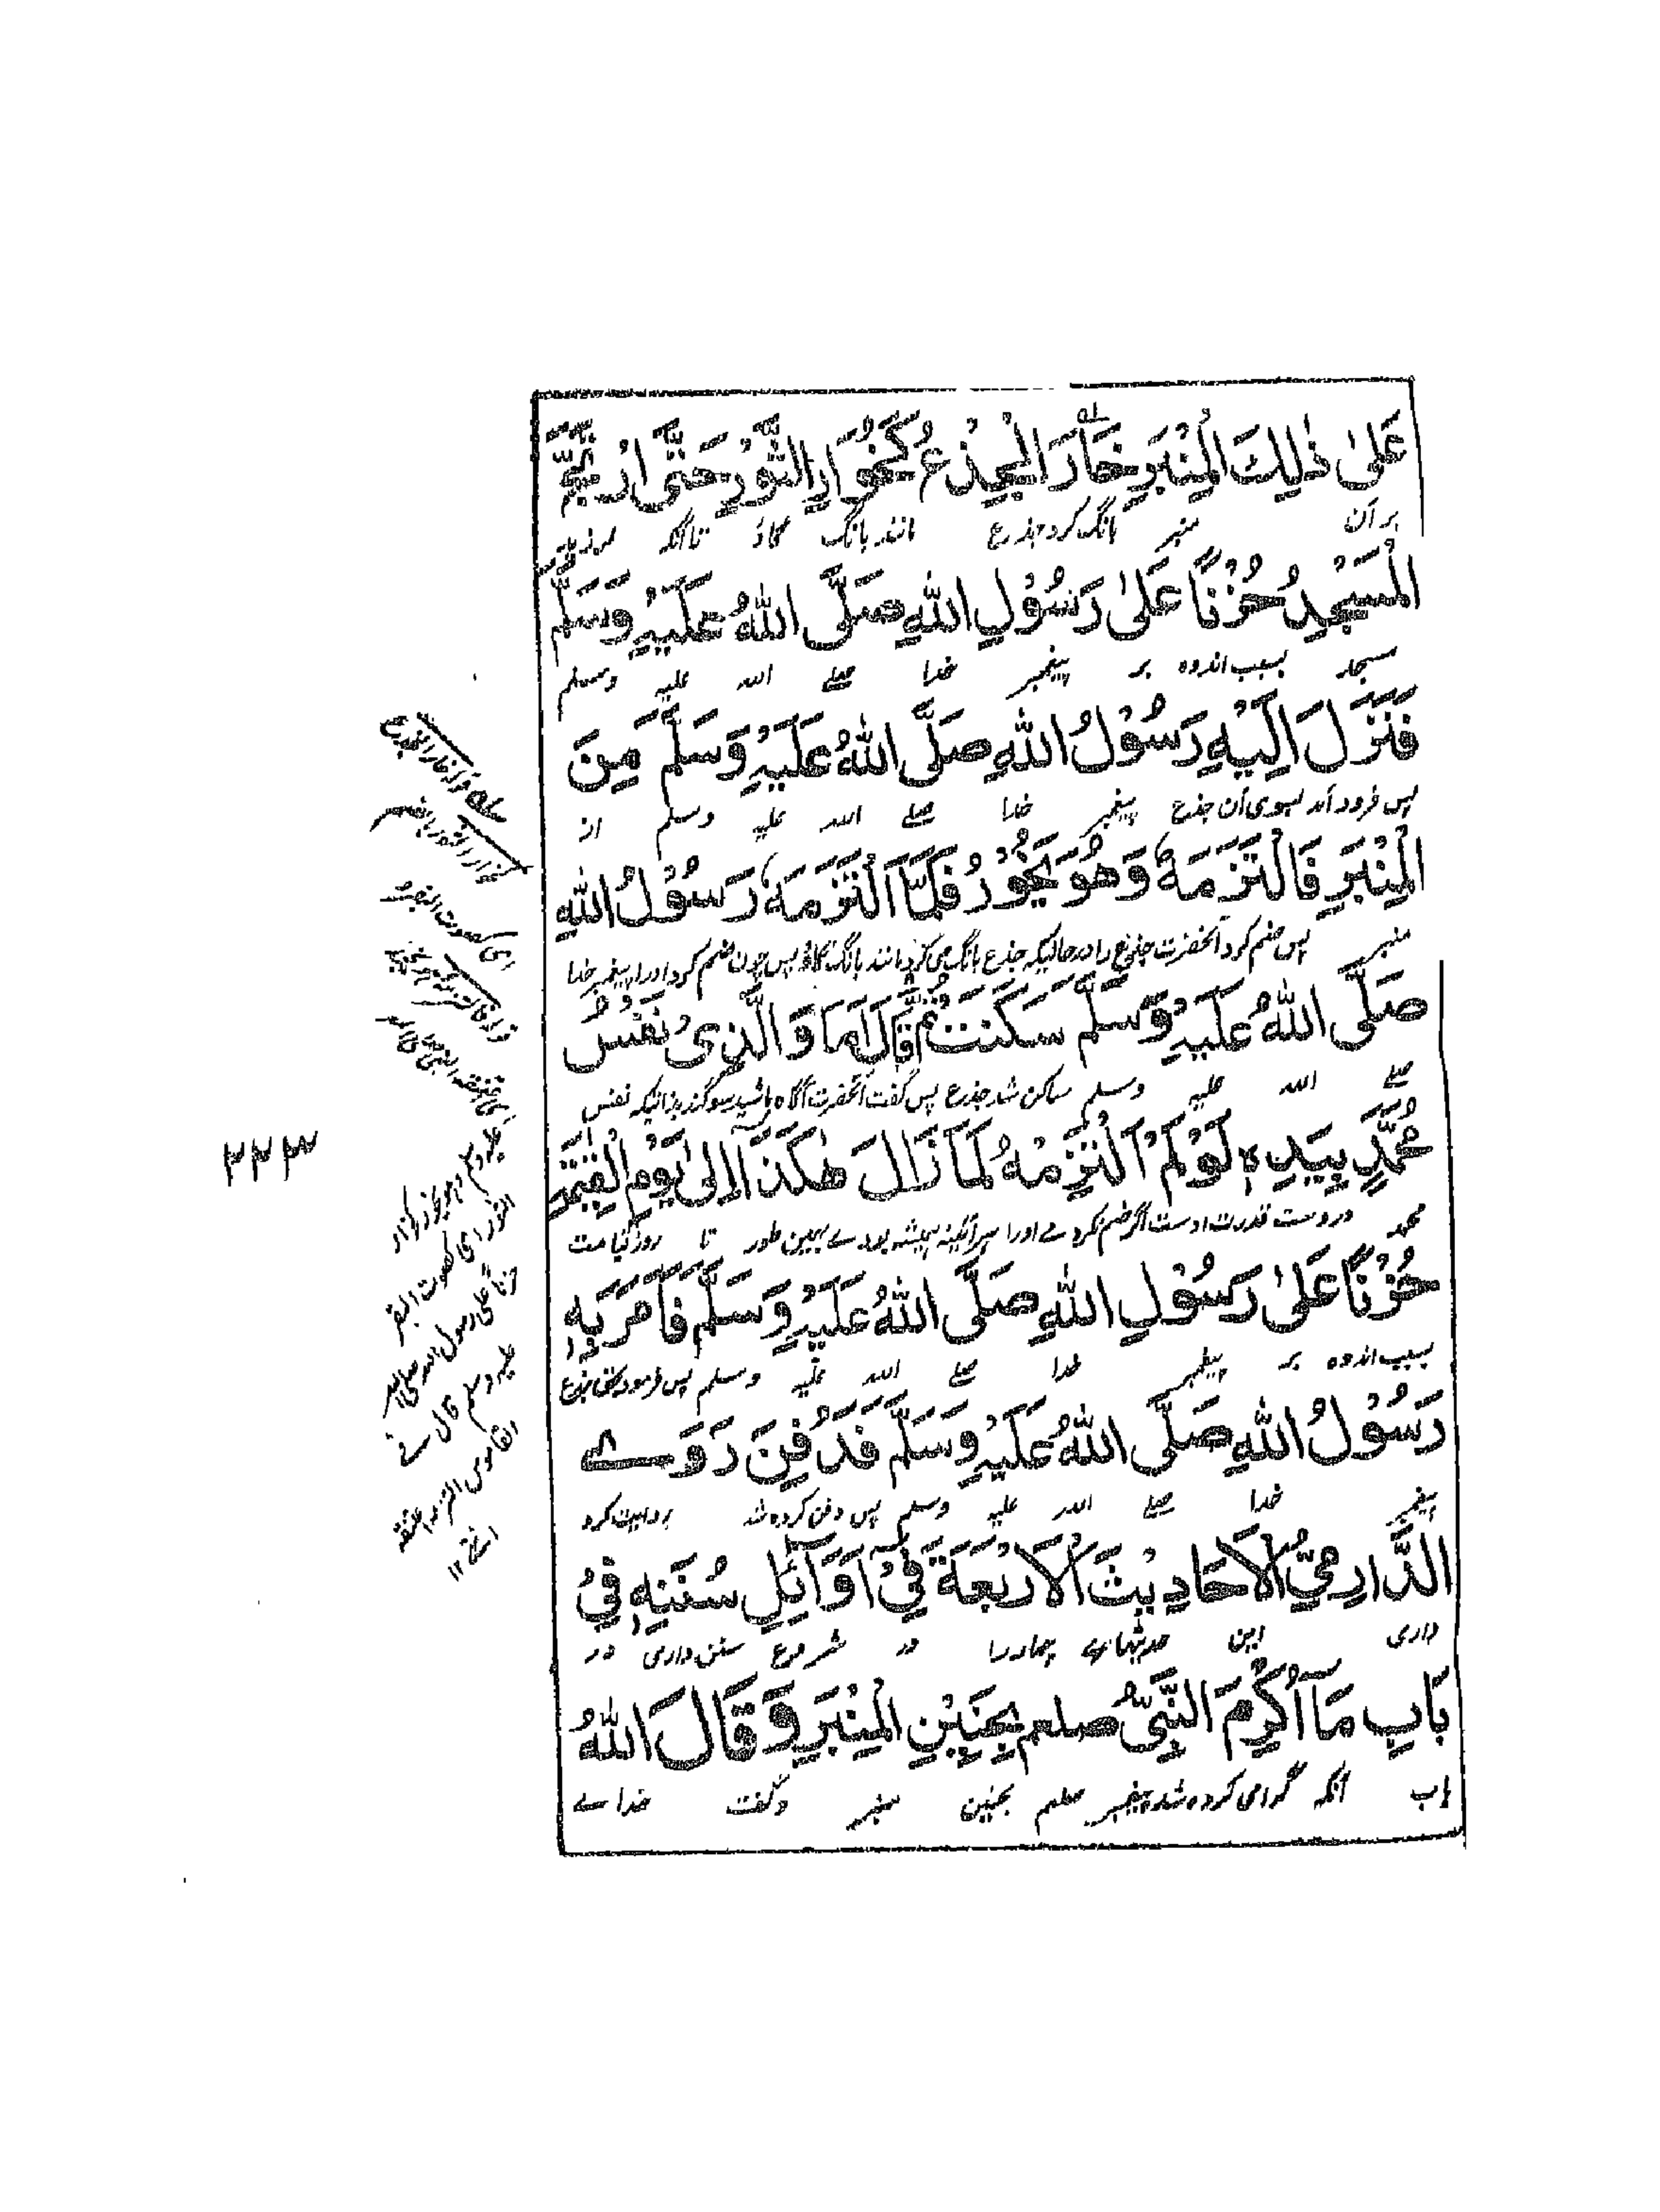 عَلٰى ذٰلِكَ الْمِنْبَرِ خَارَ الْجِذْعُ كَخُوَارِ الثَّوْرِ حَتّٰى ارْتَجَّ
بر آن منبر بانگ کرد جذع مانند بانگ گاؤ تا آنکه
الْمَسْجِدُ حُزْنًا عَلٰى رَسُوْلِ اللهِ صَلَّى اللهُ عَلَيْهِ وَسَلَّمَ
مسجد بسبب اندوه بر پیغمبر خدا صلے الله علیه وسلم
فَنَزَلَ اِلَيْهِ رَسُوْلُ اللهِ صَلَّى اللهُ عَلَيْهِ وَسَلَّمَ مِنَ
پس فرود آمد بسوی آن جذع پیغمبر خدا صلے الله علیه وسلم از
الْمِنْبَرِ فَالْتَزَمَهٗ وَهُوَ يَخُوْرُ فَلَمَّا الْتَزَمَهٗ رَسُوْلُ اللهِ
منبر پس ضم کرد آنحضرت جذع را در حالیکه جذع بانگ می کرد مانند بانگ گاؤ پس چون ضم کرد او را پیغمبر خدا
صَلَّى اللهُ عَلَيْهِ وَسَلَّمَ سَكَنَتْ ثُمَّ قَالَ اَمَا وَالَّذِىْ نَفْسُ
صلے الله علیه وسلم ساکن شد جذع پس گفت آنحضرت آگاه باشید سوگند بذاتیکه نفس
مُحَمَّدٍ بِيَدِهٖ لَوْ لَمْ اَلْتَزِمْهُ لَمَا زَالَ هٰكَذَا اِلٰى يَوْمِ الْقِيٰمَةِ
محمد در دست قدرت اوست اگر ضم نکردے او را هر آئینه همیشه بودے بهمین طور تا روز قیامت
حُزْنًا عَلٰى رَسُوْلِ اللهِ صَلَّى اللهُ عَلَيْهِ وَسَلَّمَ فَاَمَرَ بِهٖ
بسبب اندوه بر پیغمبر خدا صلے الله علیه وسلم پس فرمود بدفن جذع
رَسُوْلُ اللهِ صَلَّى اللهُ عَلَيْهِ وَسَلَّمَ فَدُفِنَ رَوَے
پیغمبر خدا صلے الله علیه وسلم پس دفن کرده شد روایت کرد
الدَّارِمِيُّ الْاَحَادِيْثَ الْاَرْبَعَةَ فِيْ اَوَآئِلِ سُنَنِهٖ فِيْ
دارمی این حدیثهاے چهار را در شروع سنن دارمی در
بَابِ مَآ اُكْرِمَ النَّبِيُّ صلعم بِحَنِيْنِ الْمِنْبَرِ وَقَالَ اللهُ
باب آنکه گرامی کرده شد پیغمبر صلعم بحنین منبر وگفت خداے
سله قوله خار الجذع
اى كصوت البقر
عليه وسلم وهو يخور كخوار
الثور اى كصوت البقر
حزنا على رسول الله صلى الله
عليه وسلم قال فے
القاموس التزمه اعتنقه
انتهى ١٢
٢٢٣